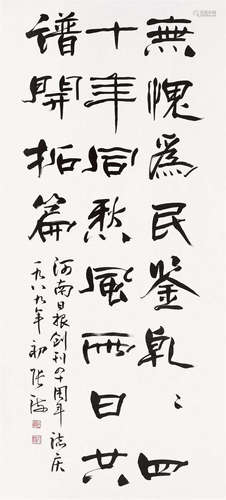 無愧爲民鉴乾〻四
十年同愁風雨日共
谱開拓篇
河南日报創刊四十周年誌庆
一九八九年初张海